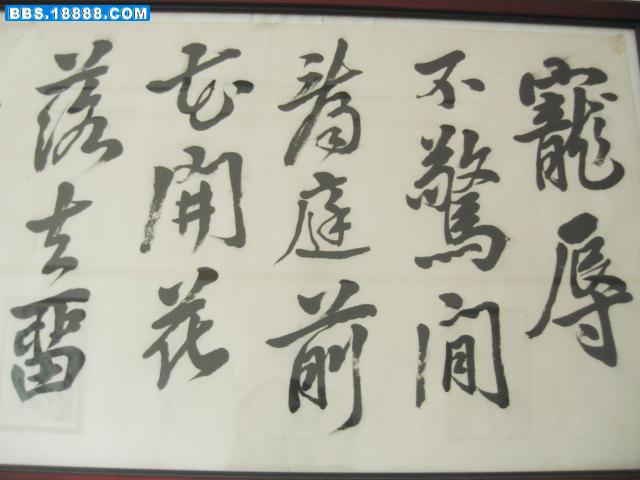 BBS.18888.COM
寵辱
不驚閒
看庭前
花開花
落去留